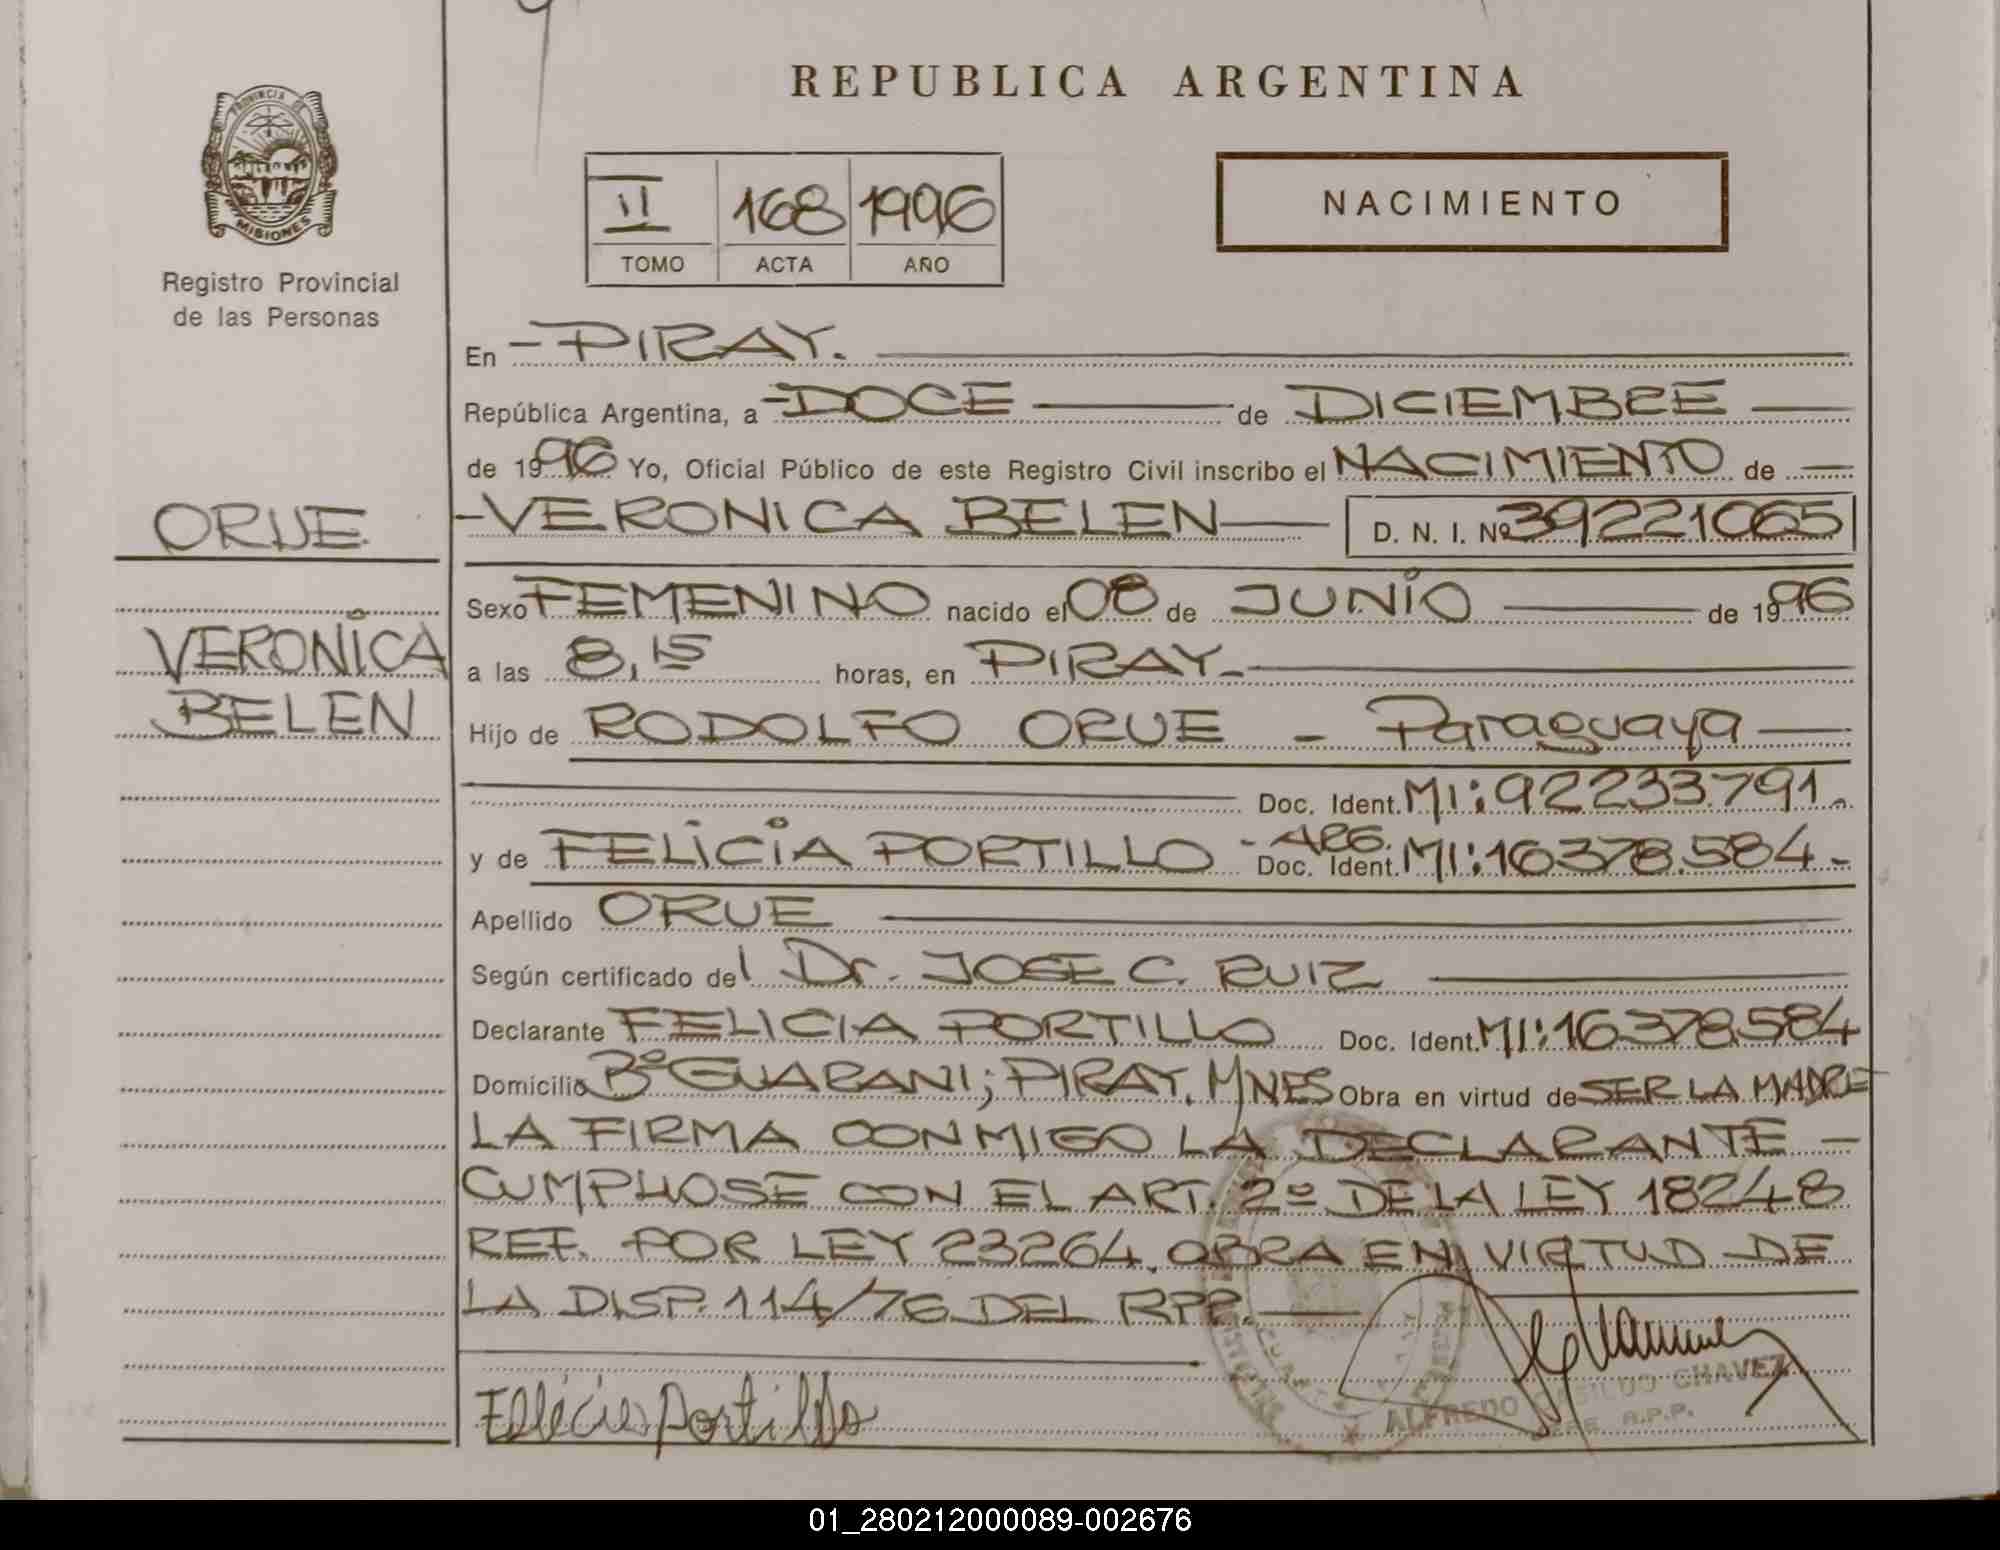 REPUBLICA ARGENTINA
PROVINCIA DE
MISIONES
Registro Provincial
de las Personas
II 168 1996
TOMO ACTA AÑO
NACIMIENTO
ORUE
VERONICA
BELEN
En - PIRAY.
República Argentina, a - DOCE de DICIEMBRE
de 1996 Yo, Oficial Público de este Registro Civil inscribo el NACIMIENTO de
- VERONICA BELEN D. N. I. Nº 39221065
Sexo FEMENINO nacido el 08 de JUNIO de 1996
a las 8,15 horas, en PIRAY -
Hijo de RODOLFO ORUE - Paraguaya
Doc. Ident. MI: 92233.791.
y de FELICIA PORTILLO - ARG. Doc. Ident. MI: 16378.584 -
Apellido ORUE
Según certificado del Dr. JOSE C. RUIZ
Declarante FELICIA PORTILLO Doc. Ident. MI: 16378584
Domicilio Bº GUARANI; PIRAY, MNES Obra en virtud de SER LA MADRE
LA FIRMA CONMIGO LA DECLARANTE -
CUMPLIOSE CON EL ART. 2º DE LA LEY 18248
REF. POR LEY 23264. OBRA EN VIRTUD DE
LA DISP. 114/76 DEL RPP.
Felicia Portillo
ALFREDO CHAVEZ
R.P.P.
01_280212000089-002676